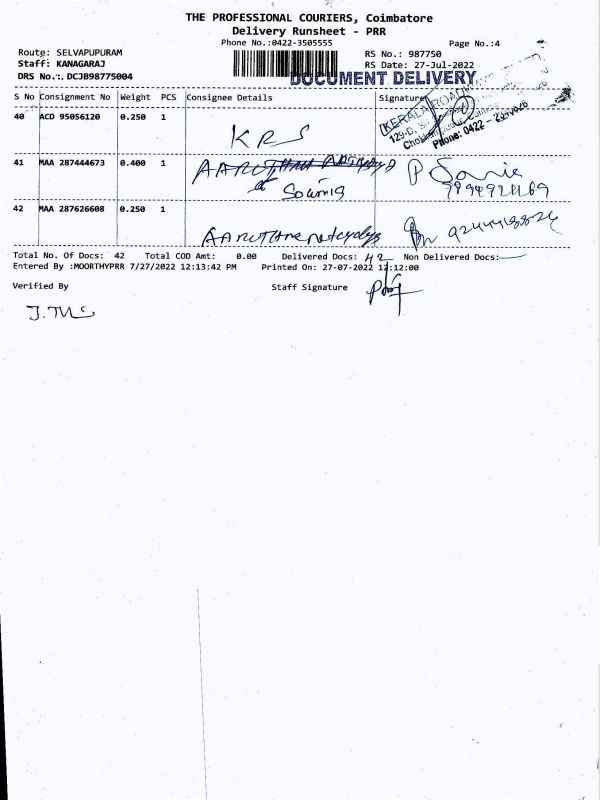 THE PROFESSIONAL COURIERS, Coimbatore
Delivery Runsheet - PRR
Phone No.:0422-3505555
Page No.:4
Route: SELVAPUPURAM
RS No.: 987750
Staff: KANAGARAJ
RS Date: 27-Jul-2022
DRS No.:. DCJB98775004
DOCUMENT DELIVERY
S No Consignment No Weight PCS Consignee Details Signature
40 ACD 95056120 0.250 1 KRS
(KERALA ROADWAYS
129-D,
Phone: 0422 -
41 MAA 287444673 0.400 1
Sowmia
42 MAA 287626608 0.250 1
Total No. Of Docs: 42 Total COD Amt: 0.00 Delivered Docs: 42 Non Delivered Docs:
Entered By :MOORTHYPRR 7/27/2022 12:13:42 PM Printed On: 27-07-2022 12:12:00
Verified By Staff Signature